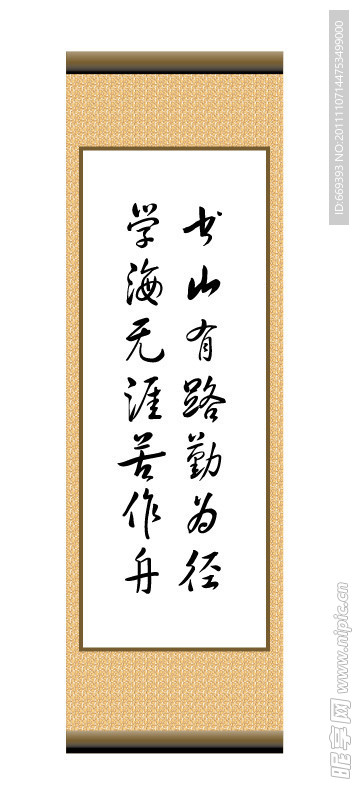 书山有路勤为径
学海无涯苦作舟
ID:669393 NO:20111107144753499000
昵享网 www.nipic.cn